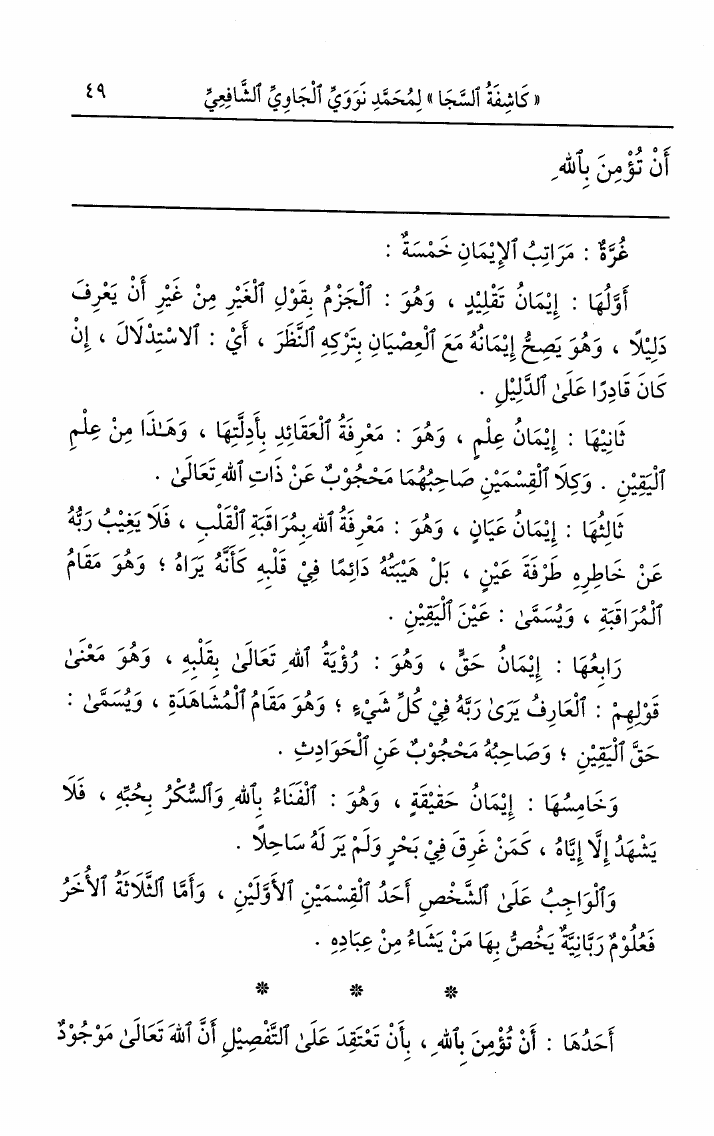 « كَاشِفَةُ ٱلسَّجَا » لِمُحَمَّدِ نَوَوَيٍّ ٱلْجَاوِيِّ ٱلشَّافِعِيِّ ٤٩
أَنْ تُؤْمِنَ بِٱللهِ
غُرَّةٌ : مَرَاتِبُ ٱلإِيْمَانِ خَمْسَةٌ :
أَوَّلُهَا : إِيْمَانُ تَقْلِيْدٍ ، وَهُوَ : ٱلْجَزْمُ بِقَوْلِ ٱلْغَيْرِ مِنْ غَيْرِ أَنْ يَعْرِفَ
دَلِيْلًا ، وَهُوَ يَصِحُّ إِيْمَانُهُ مَعَ ٱلْعِصْيَانِ بِتَرْكِهِ ٱلنَّظَرَ ، أَيْ : ٱلاسْتِدْلَالَ ، إِنْ
كَانَ قَادِرًا عَلَىٰ ٱلدَّلِيْلِ .
ثَانِيْهَا : إِيْمَانُ عِلْمٍ ، وَهُوَ : مَعْرِفَةُ ٱلْعَقَائِدِ بِأَدِلَّتِهَا ، وَهَـٰذَا مِنْ عِلْمِ
ٱلْيَقِيْنِ . وَكِلَا ٱلْقِسْمَيْنِ صَاحِبُهُمَا مَحْجُوْبٌ عَنْ ذَاتِ ٱللهِ تَعَالَىٰ .
ثَالِثُهَا : إِيْمَانُ عَيَانٍ ، وَهُوَ : مَعْرِفَةُ ٱللهِ بِمُرَاقَبَةِ ٱلْقَلْبِ ، فَلَا يَغِيْبُ رَبُّهُ
عَنْ خَاطِرِهِ طَرْفَةَ عَيْنٍ ، بَلْ هَيْبَتُهُ دَائِمًا فِيْ قَلْبِهِ كَأَنَّهُ يَرَاهُ ؛ وَهُوَ مَقَامُ
ٱلْمُرَاقَبَةِ ، وَيُسَمَّىٰ : عَيْنَ ٱلْيَقِيْنِ .
رَابِعُهَا : إِيْمَانُ حَقٍّ ، وَهُوَ : رُؤْيَةُ ٱللهِ تَعَالَىٰ بِقَلْبِهِ ، وَهُوَ مَعْنَىٰ
قَوْلِهِمْ : ٱلْعَارِفُ يَرَىٰ رَبَّهُ فِيْ كُلِّ شَيْءٍ ؛ وَهُوَ مَقَامُ ٱلْمُشَاهَدَةِ ، وَيُسَمَّىٰ :
حَقَّ ٱلْيَقِيْنِ ؛ وَصَاحِبُهُ مَحْجُوْبٌ عَنِ ٱلْحَوَادِثِ .
وَخَامِسُهَا : إِيْمَانُ حَقِيْقَةٍ ، وَهُوَ : ٱلْفَنَاءُ بِٱللهِ وَٱلسُّكْرُ بِحُبِّهِ ، فَلَا
يَشْهَدُ إِلَّا إِيَّاهُ ، كَمَنْ غَرِقَ فِيْ بَحْرٍ وَلَمْ يَرَ لَهُ سَاحِلًا .
وَٱلْوَاجِبُ عَلَىٰ ٱلشَّخْصِ أَحَدُ ٱلْقِسْمَيْنِ ٱلأَوَّلَيْنِ ، وَأَمَّا ٱلثَّلَاثَةُ ٱلأُخَرُ
فَعُلُوْمٌ رَبَّانِيَّةٌ يَخُصُّ بِهَا مَنْ يَشَاءُ مِنْ عِبَادِهِ .
* * *
أَحَدُهَا : أَنْ تُؤْمِنَ بِٱللهِ ، بِأَنْ تَعْتَقِدَ عَلَىٰ ٱلتَّفْصِيْلِ أَنَّ ٱللهَ تَعَالَىٰ مَوْجُوْدٌ